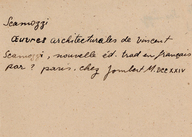 Scamozzi
Œuvres architecturales de vincent
Scamozzi, nouvelle éd. trad en français
par ? paris. chez Jombert M.DCCXXIV